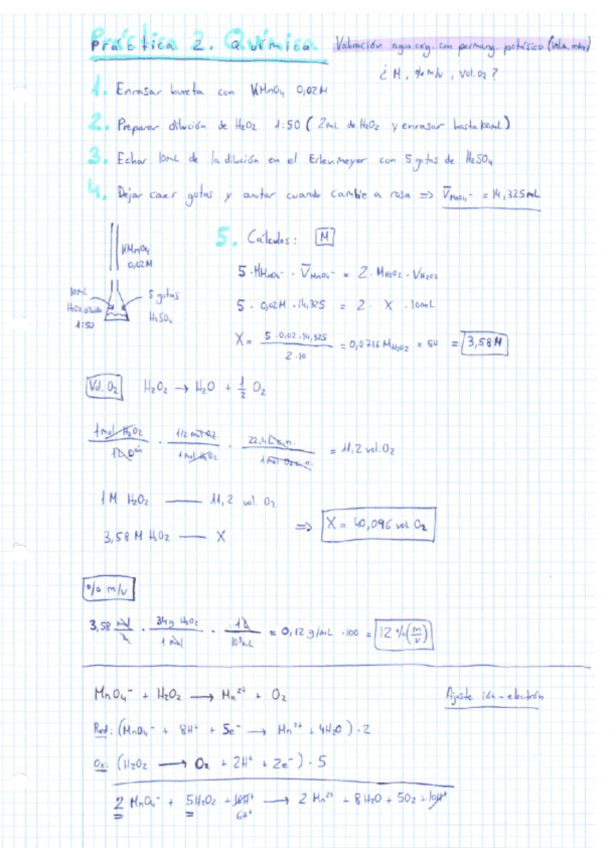 Práctica 2. Química Valoración agua oxig. con permang. potásico
¿ M, % m/v, vol. O₂ ?
1. Enrasar bureta con KMnO₄ 0,02M
2. Preparar dilución de H₂O₂ 1:50 ( 2mL de H₂O₂ y enrasar hasta 100mL )
3. Echar 10mL de la dilución en el Erlenmeyer con 5 gotas de H₂SO₄
4. Dejar caer gotas y anotar cuando cambie a rosa ⇒ V̅MnO₄⁻ = 14,325mL
KMnO₄
0,02M
10mL
H₂O₂
1:50
5 gotas
H₂SO₄
5. Cálculos: M
5 · MMnO₄⁻ · V̅MnO₄⁻ = 2 · MH₂O₂ · VH₂O₂
5 · 0,02M · 14,325 = 2 · X · 10mL
X = 5 · 0,02 · 14,325 / 2 · 10 = 0,0716 MH₂O₂ × 50 = 3,58M
Vol. O₂ H₂O₂ → H₂O + 1/2 O₂
1 mol H₂O₂ / 1L · 1/2 mol O₂ / 1 mol H₂O₂ · 22,4L c.n. / 1 mol O₂ c.n. = 11,2 vol. O₂
1M H₂O₂ —— 11,2 vol. O₂
3,58 M H₂O₂ —— X ⇒ X = 40,096 vol O₂
% m/v
3,58 mol / L · 34g H₂O₂ / 1 mol · 1L / 10³mL = 0,12 g/mL · 100 = 12 % (m/v)
MnO₄⁻ + H₂O₂ → Mn²⁺ + O₂ Ajuste ión-electrón
Red: (MnO₄⁻ + 8H⁺ + 5e⁻ → Mn²⁺ + 4H₂O) · 2
Ox: (H₂O₂ → O₂ + 2H⁺ + 2e⁻) · 5
2 MnO₄⁻ + 5H₂O₂ + 16H⁺ → 2 Mn²⁺ + 8H₂O + 5O₂ + 10H⁺
6H⁺